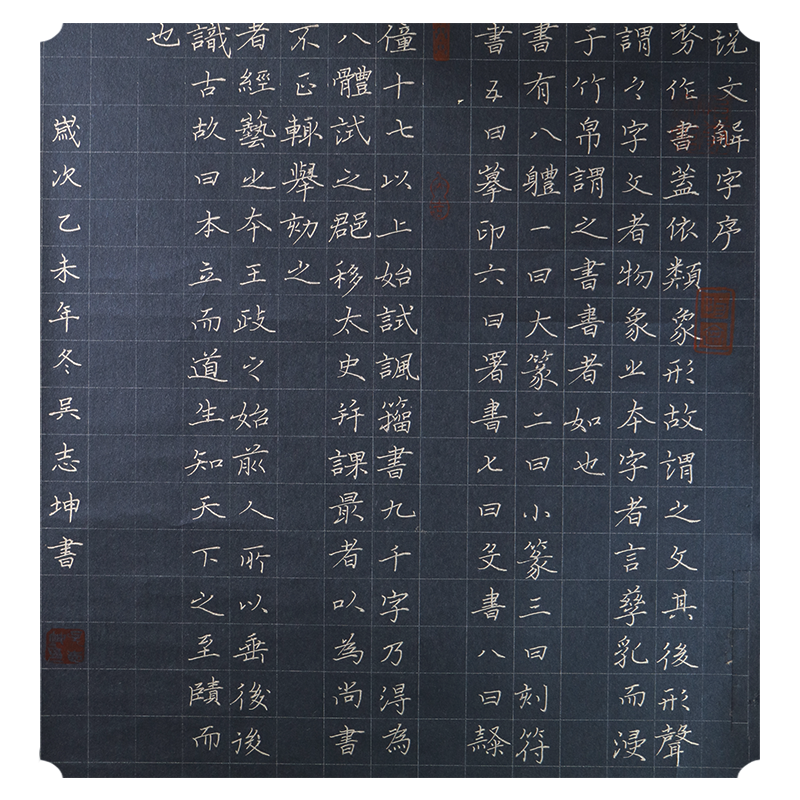 説文解字序
作書蓋依類象形故謂之文其後形聲
謂之字文者物象之本字者言孳乳而浸
于竹帛謂之書書者如也
書有八軆一曰大篆二曰小篆三曰刻符
書五曰摹印六曰署書七曰殳書八曰隸
僮十七以上始試諷籀書九千字乃得為
八體試之郡移太史并課最者以為尚書
不正輒舉劾之
者經藝之本王政之始前人所以垂後後
識古故曰本立而道生知天下之至賾而
也
歲次乙未年冬吳志坤書